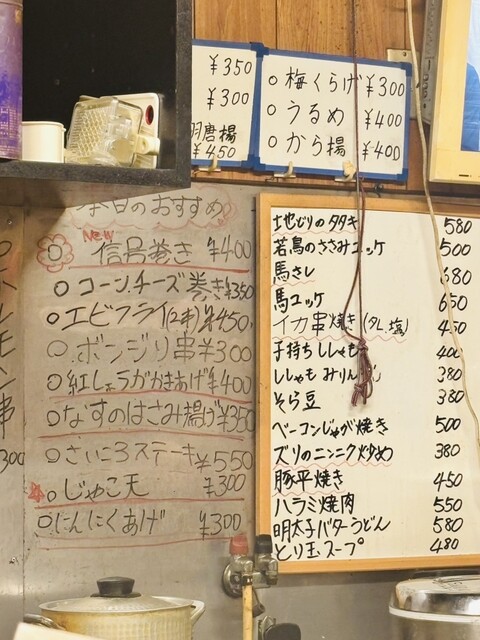 ¥350
¥300
唐揚
¥450
○ 梅くらげ ¥300
○ うるめ ¥400
○ から揚 ¥400
本日のおすすめ
New
○ 信号巻き ¥400
○ コーンチーズ巻き ¥350
○ エビフライ(2本) ¥450
○ ボンジリ串 ¥300
○ 紅しょうがかきあげ ¥400
○ なすのはさみ揚げ ¥350
○ さいころステーキ ¥550
○ じゃこ天 ¥300
○ にんにくあげ ¥300
串
300
地どりのタタキ 580
若鳥のささみユッケ 500
馬さし 680
馬ユッケ 650
イカ串焼き(タレ,塩) 450
子持ちししゃも 400
ししゃもみりん 380
そら豆 380
ベーコンじゃが焼き 500
ズリのニンニク炒め 380
豚平焼き 450
ハラミ焼肉 550
明太子バターうどん 580
とり玉スープ 480